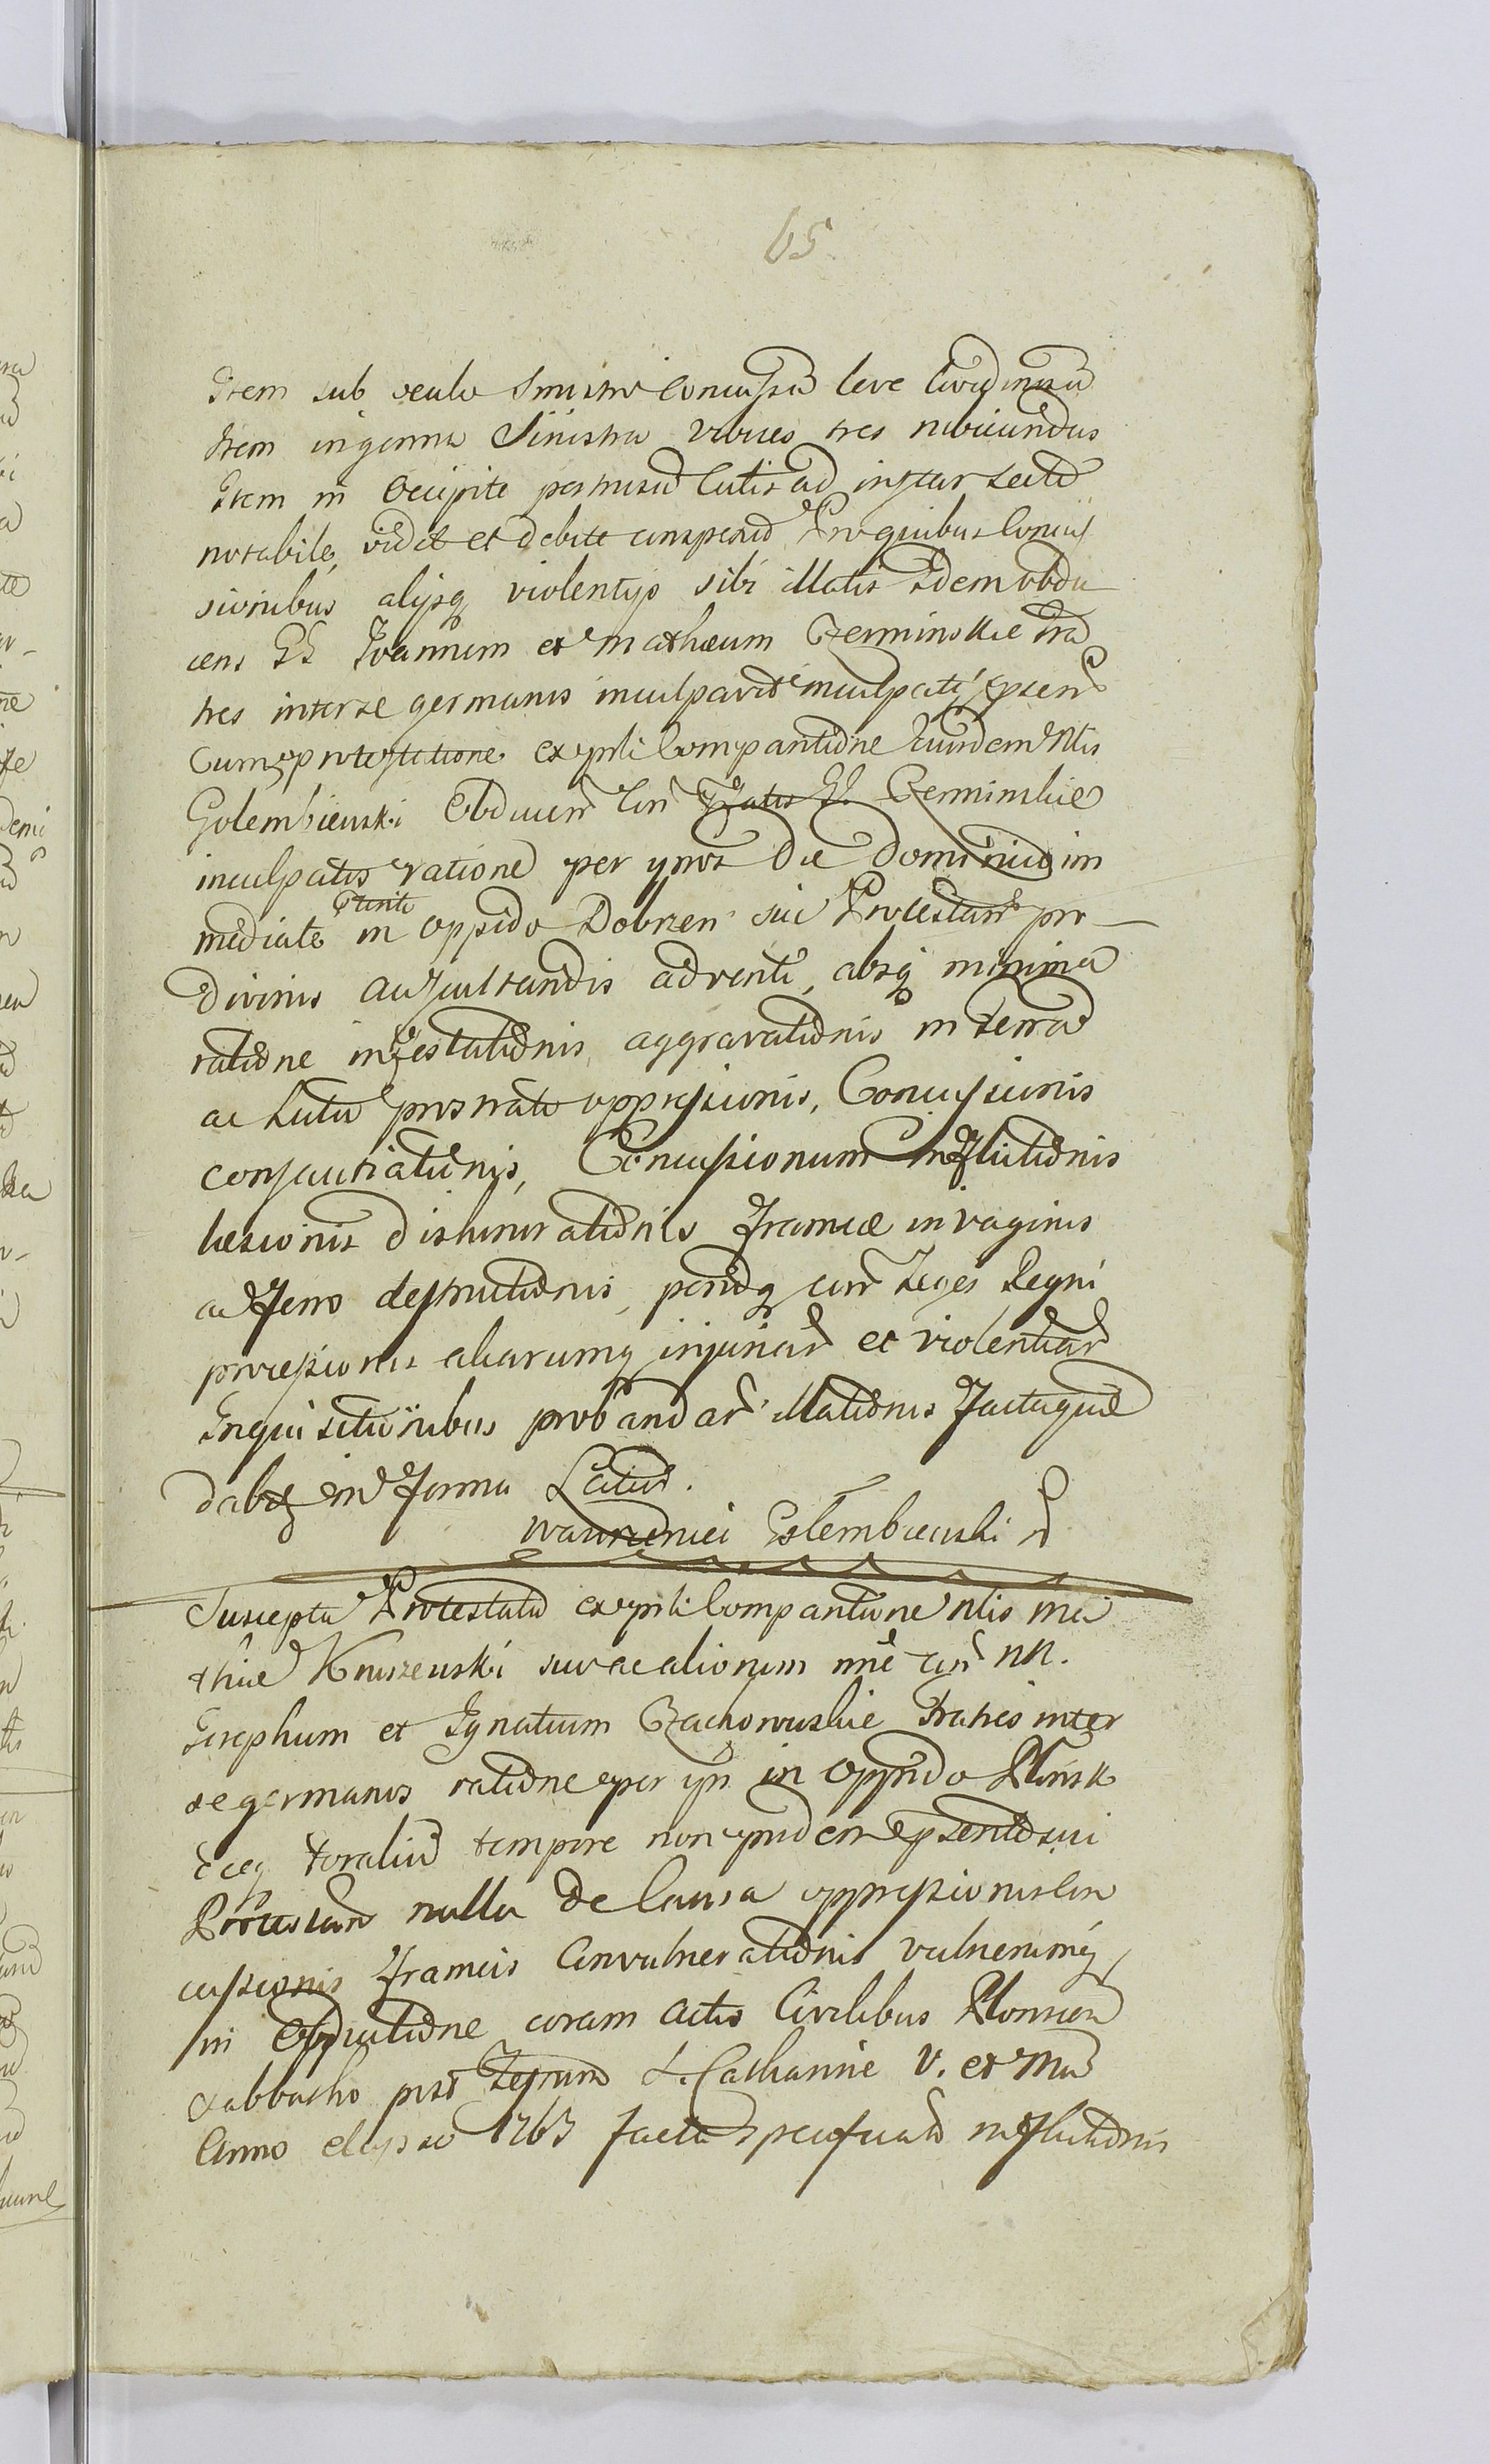 65.
Item sub oculo Sinistro Concussa leve lividinosa
Item in genna Sinistra vibices tres rubicundas
Item in Occipite pertusio Cutis ad instar secta
notabiles, vidit et debite conspexit Pro quibus Concus
sionibus alijsq violentijs sibi illatis Idem obdu
cens GG Ioannem et Mathæum Czerminskie Fra
tres inter se germanos inculpavit inculpatq psen
Cumq protestatione ex pnli Compantione eiusdem Nlis
Golembiewski Obducen Con Fratres GG. Czerminskie
inculpatos ratione per ipsos Die Dominico im
mediate pterito in Oppido Dobrzen sui Protestan pro
Divinis auscultandis adventi, absq minima
ratione infestationis aggravationis in terra
ac Luto prostrato oppressionis, Concussionis
consauciationis, Concussionum inflictionis
læsionis disturbationis Frameæ in vaginis
ac ferro destructionis, pnq con Leges Regni
processionis aliarumq injuriar et violentiar
Inquisitionibus probandar illationis Factaque
dabit in forma Latius.
Wawrzeniec Golembiewski
Suscepta Protestatio ex pnli Compantione Nlis Ma
thiæ Kruszewski suo ac aliorum nne con NN.
Josephum et Ignatium Czachorowskie Fratres inter
se germanos ratione per ips in Oppido Płonsk
tempore non pridem psenti sui
Protestan nulla de Causa oppressionis con
cussionis Frameis Convulnerationis vulnerumq
in Obductione coram Actis Civilibus Plonscen
Sabbatho post Festum S. Catharinæ V. et Mar
Anno elapso 1763 facta specificator inflictionis